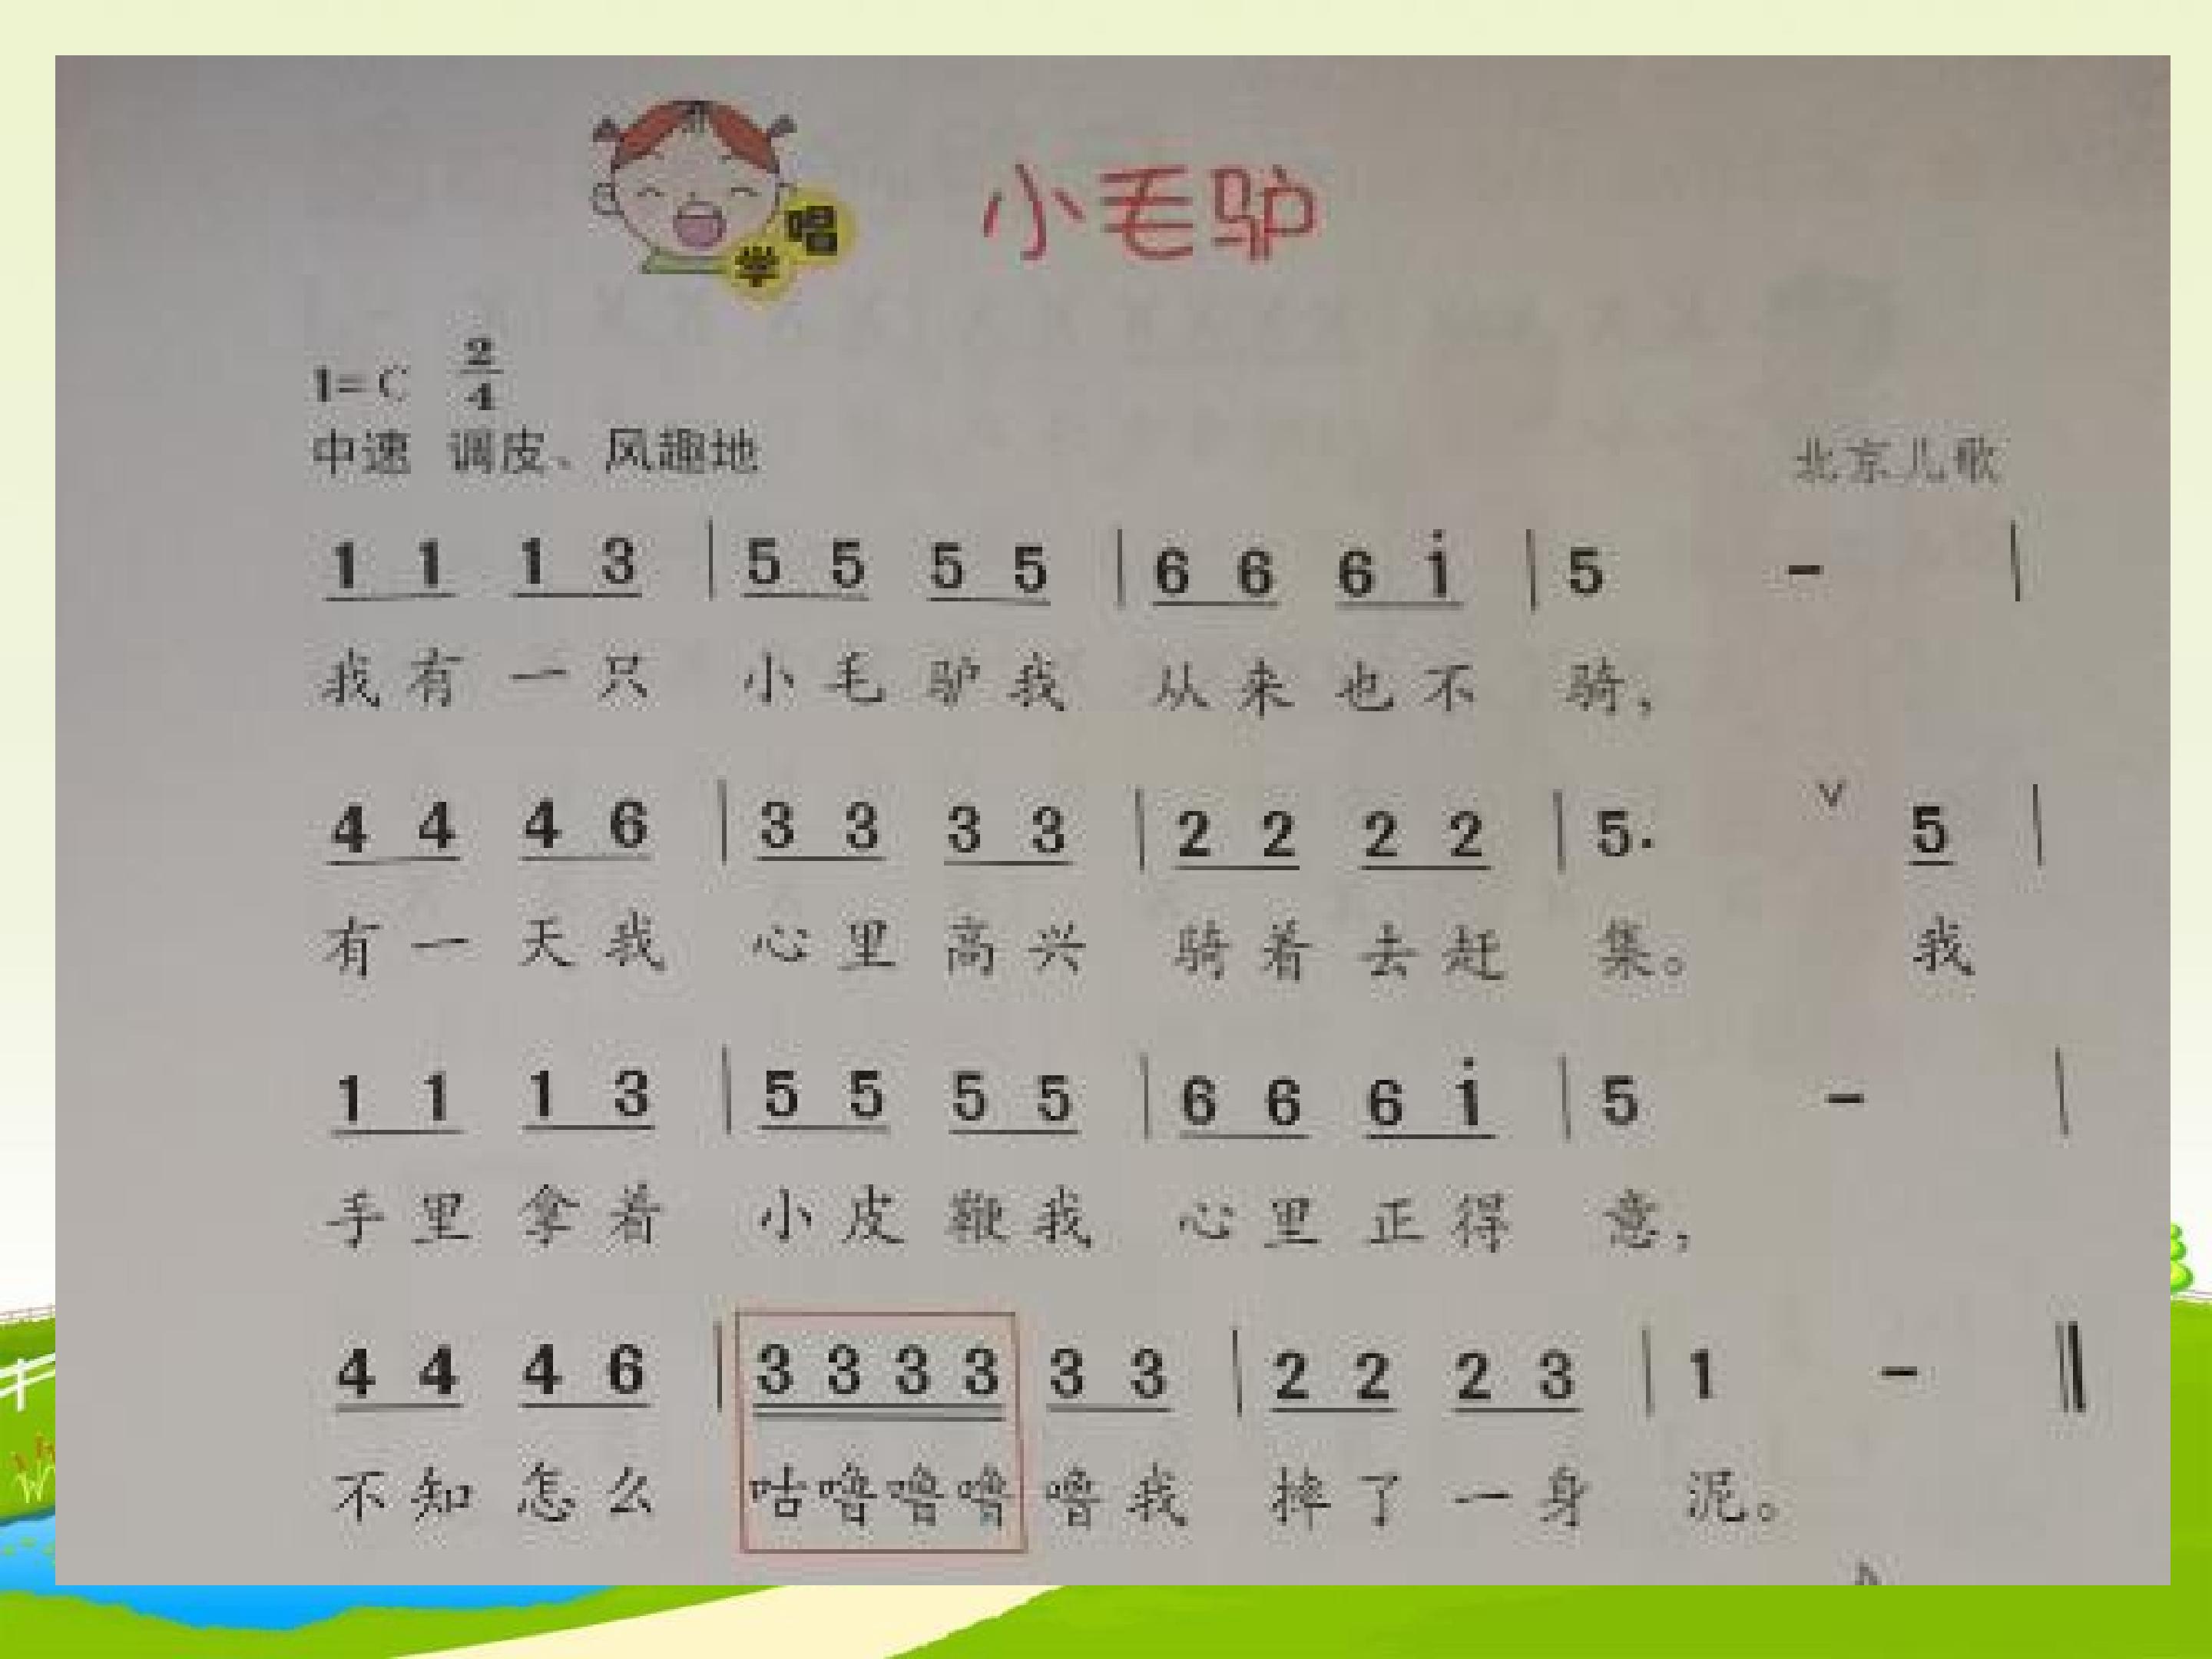 学唱
小毛驴
1=C 2/4
中速 调皮、风趣地
北京儿歌
1 1 1 3 | 5 5 5 5 | 6 6 6 i̇ | 5 - |
我有一只 小毛驴我 从来也不 骑，
4 4 4 6 | 3 3 3 3 | 2 2 2 2 | 5. ∨ 5 |
有一天我 心里高兴 骑着去赶 集。 我
1 1 1 3 | 5 5 5 5 | 6 6 6 i̇ | 5 - |
手里拿着 小皮鞭我 心里正得 意，
4 4 4 6 | 3 3 3 3 3 3 | 2 2 2 3 | 1 - ‖
不知怎么 咕噜噜噜噜我 摔了一身 泥。